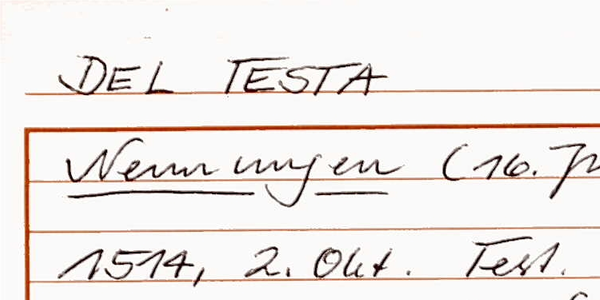 DEL TESTA
Nennungen (16. J
1514, 2. Okt. Test.